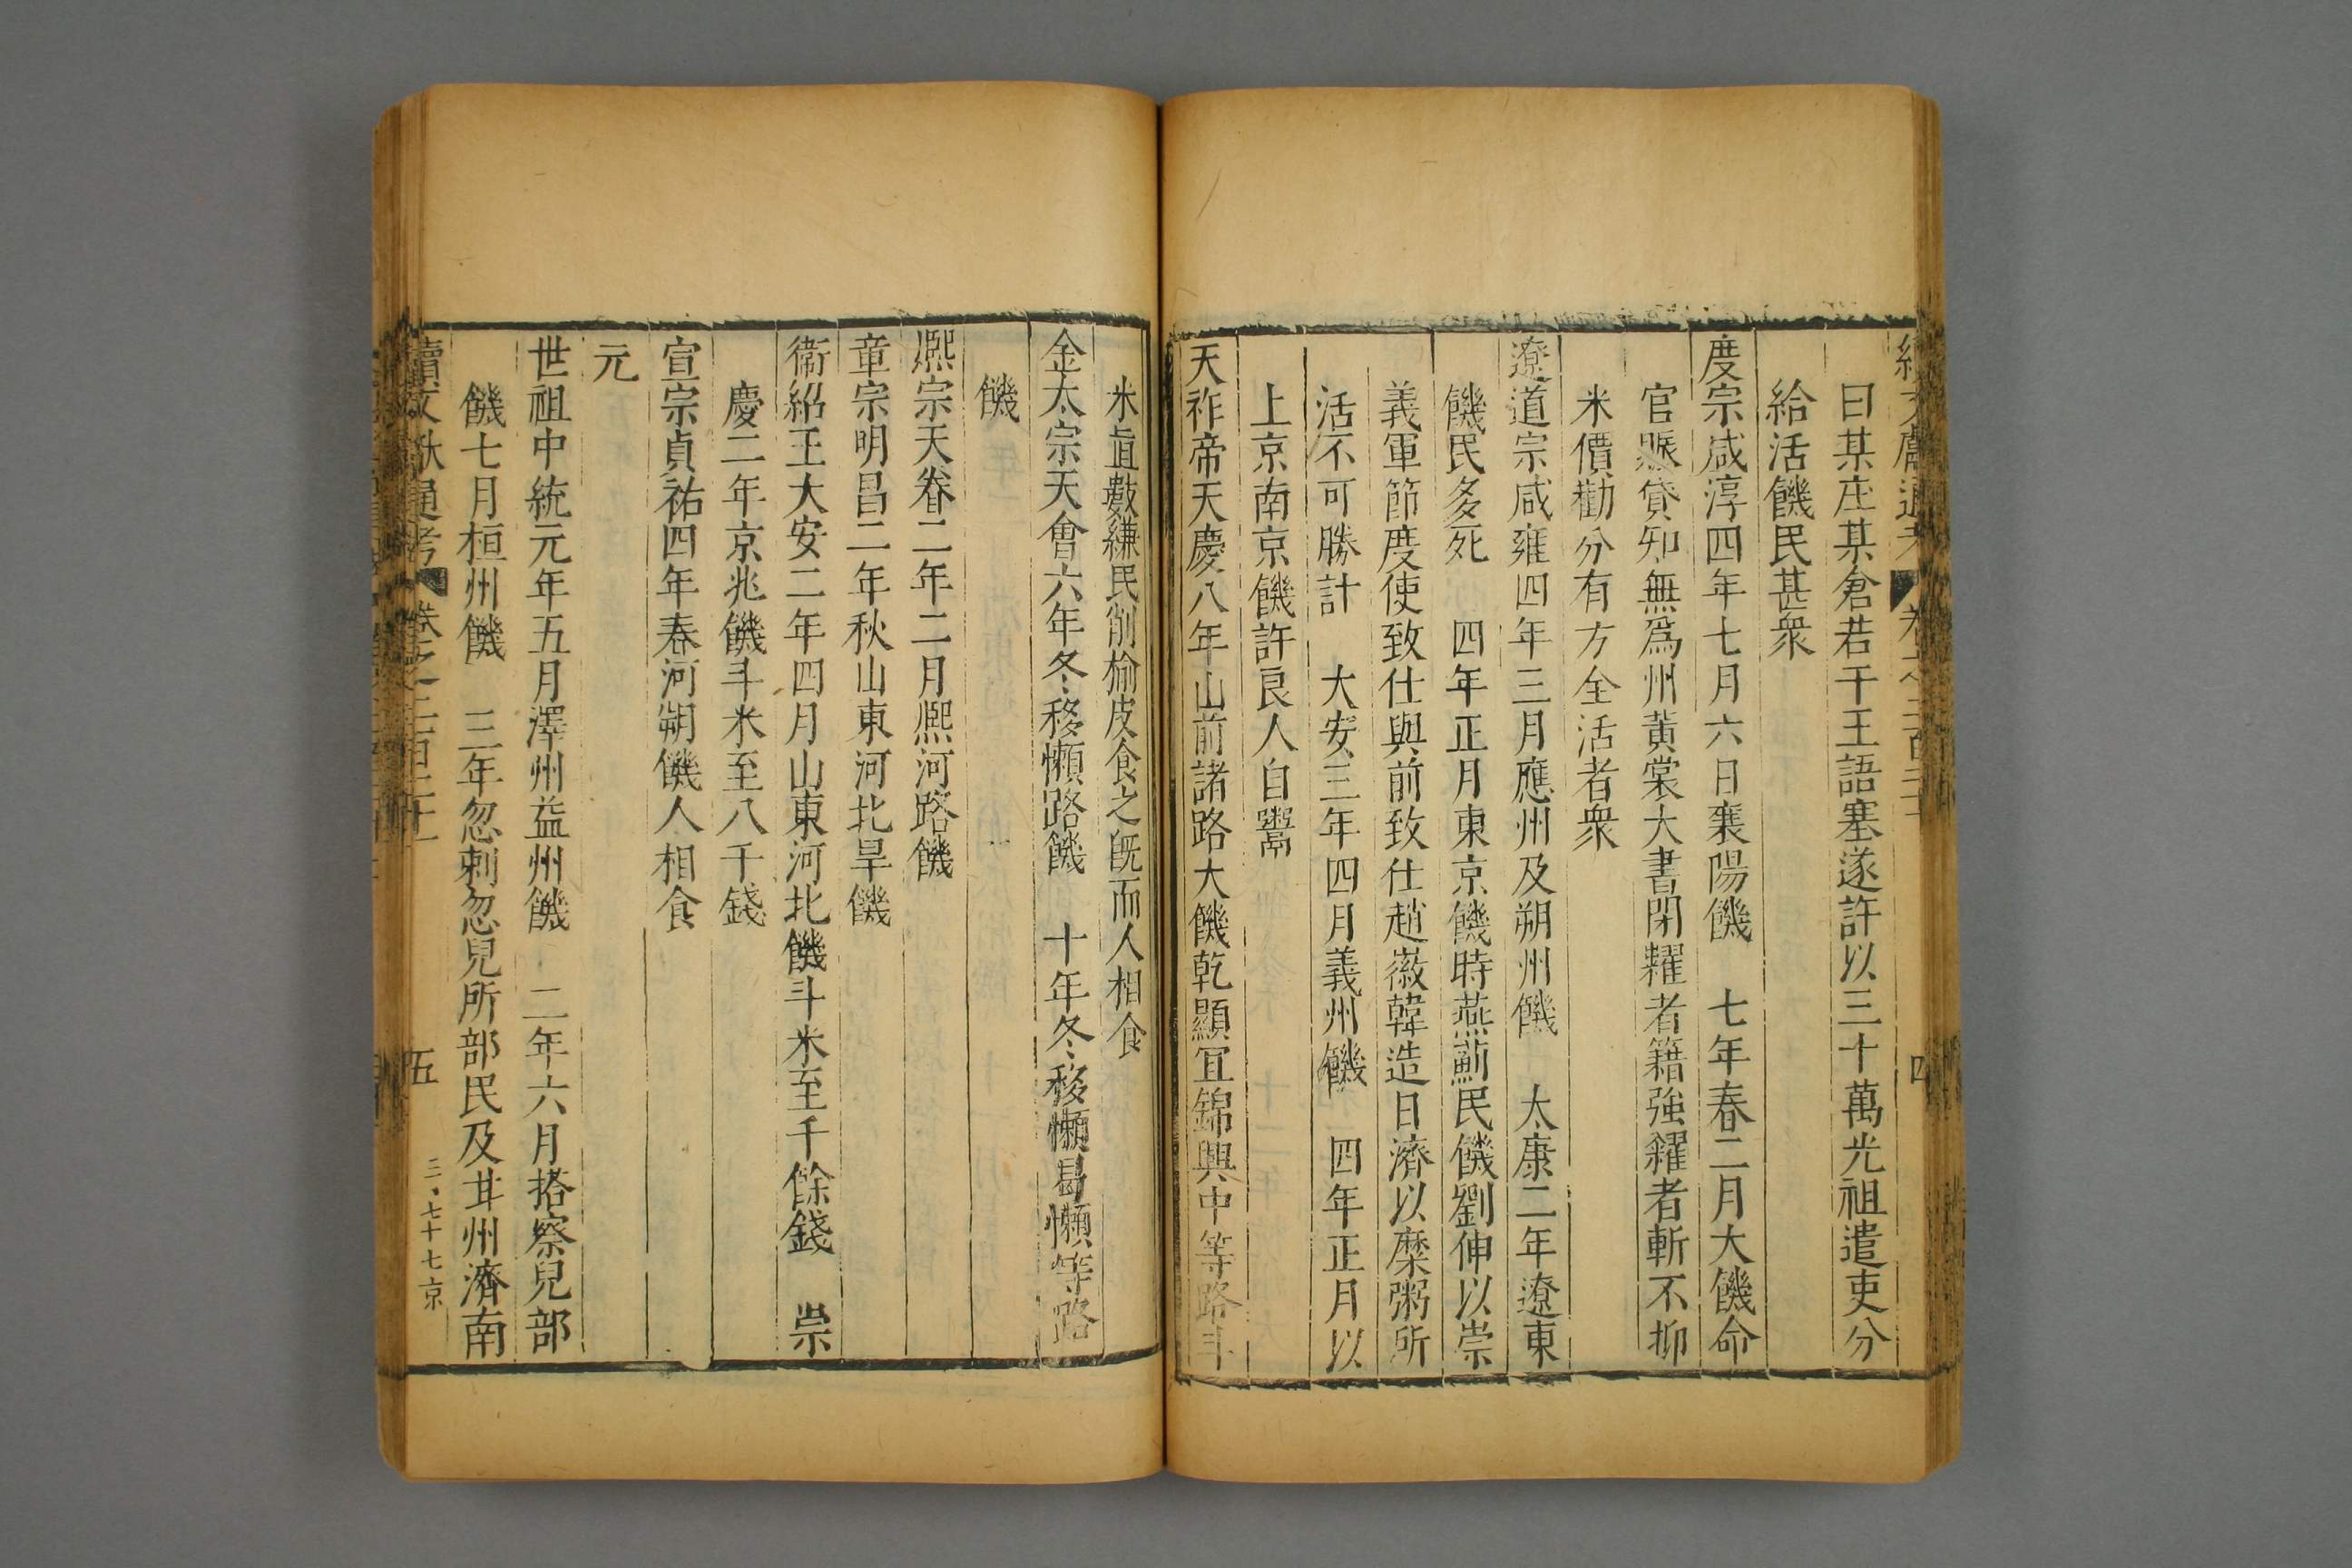 續文獻通考 卷之二百二十 四
曰某庄某倉若干王語塞遂許以三十萬光祖遣吏分
給活饑民甚衆
度宗咸淳四年七月六日襄陽饑 七年春二月大饑命
官賑貸知無爲州黃棠大書閉糶者籍強糴者斬不抑
米價勸分有方全活者衆
遼道宗咸雍四年三月應州及朔州饑 太康二年遼東
饑民多死 四年正月東京饑時燕薊民饑劉伸以崇
義軍節度使致仕與前致仕趙徽韓造日濟以糜粥所
活不可勝計 大安三年四月義州饑 四年正月以
上京南京饑許良人自鬻
天祚帝天慶八年山前諸路大饑乾顯宜錦興中等路斗
米直數縑民削榆皮食之旣而人相食
金太宗天會六年冬移懶路饑 十年冬移懶曷懶等路
饑
熈宗天眷二年二月熈河路饑
章宗明昌二年秋山東河北旱饑
衞紹王大安二年四月山東河北饑斗米至千餘錢 崇
慶二年京兆饑斗米至八千錢
宣宗貞祐四年春河朔饑人相食
元
世祖中統元年五月澤州益州饑 二年六月搭察兒部
饑七月桓州饑 三年忽剌忽兒所部民及甘州濟南
續文獻通考 卷之二百二十 五
三、七十七京